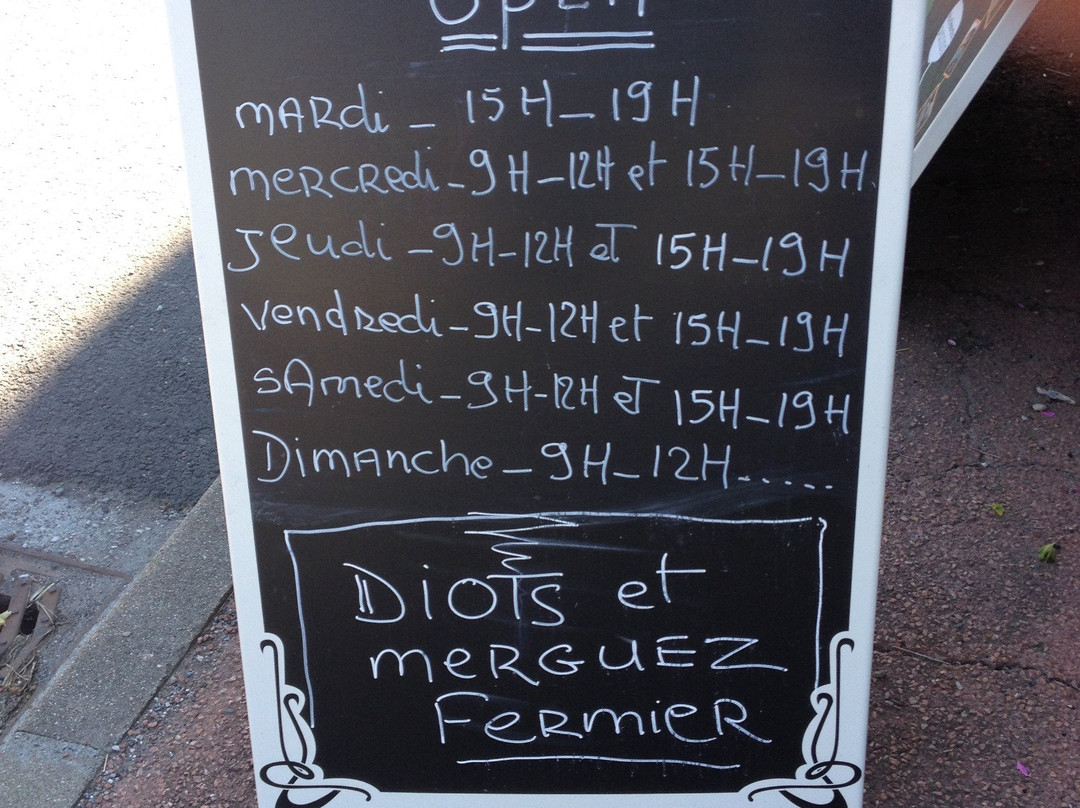 OPEN
MARdi - 15H - 19H
MERCRedi - 9H - 12H et 15H - 19H
Jeudi - 9H - 12H eT 15H - 19H
Vendredi - 9H - 12H et 15H - 19H
SAmedi - 9H - 12H eT 15H - 19H
DimAnche - 9H - 12H......
DiOTS et
meRGUEZ
FeRmieR